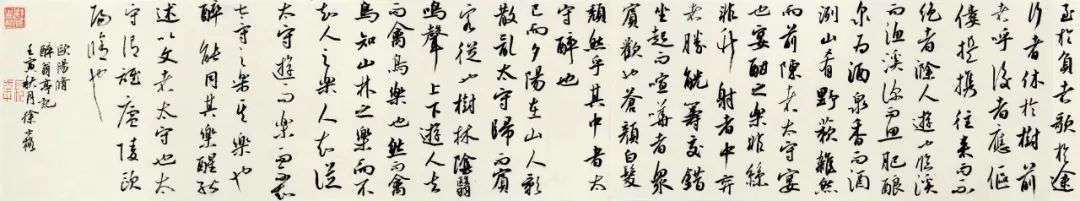 至於負者歌於途
行者休於樹前
者呼後者應傴
僂提攜往來而不
絕者滁人遊也臨溪
而漁溪深而魚肥釀
泉為酒泉香而酒
洌山肴野蔌雜然
而前陳者太守宴
也宴酣之樂非絲
非竹射者中弈
者勝觥籌交錯
坐起而喧譁者眾
賓歡也蒼顏白髮
頹然乎其中者太
守醉也
已而夕陽在山人影
散亂太守歸而賓
客從也樹林陰翳
鳴聲上下遊人去
而禽鳥樂也然而禽
鳥知山林之樂而不
知人之樂人知從
太守遊而樂而不知
太守之樂其樂也
醉能同其樂醒能
述以文者太守也太
守謂誰廬陵歐
陽脩也
歐陽脩
醉翁亭記
壬寅秋月徐